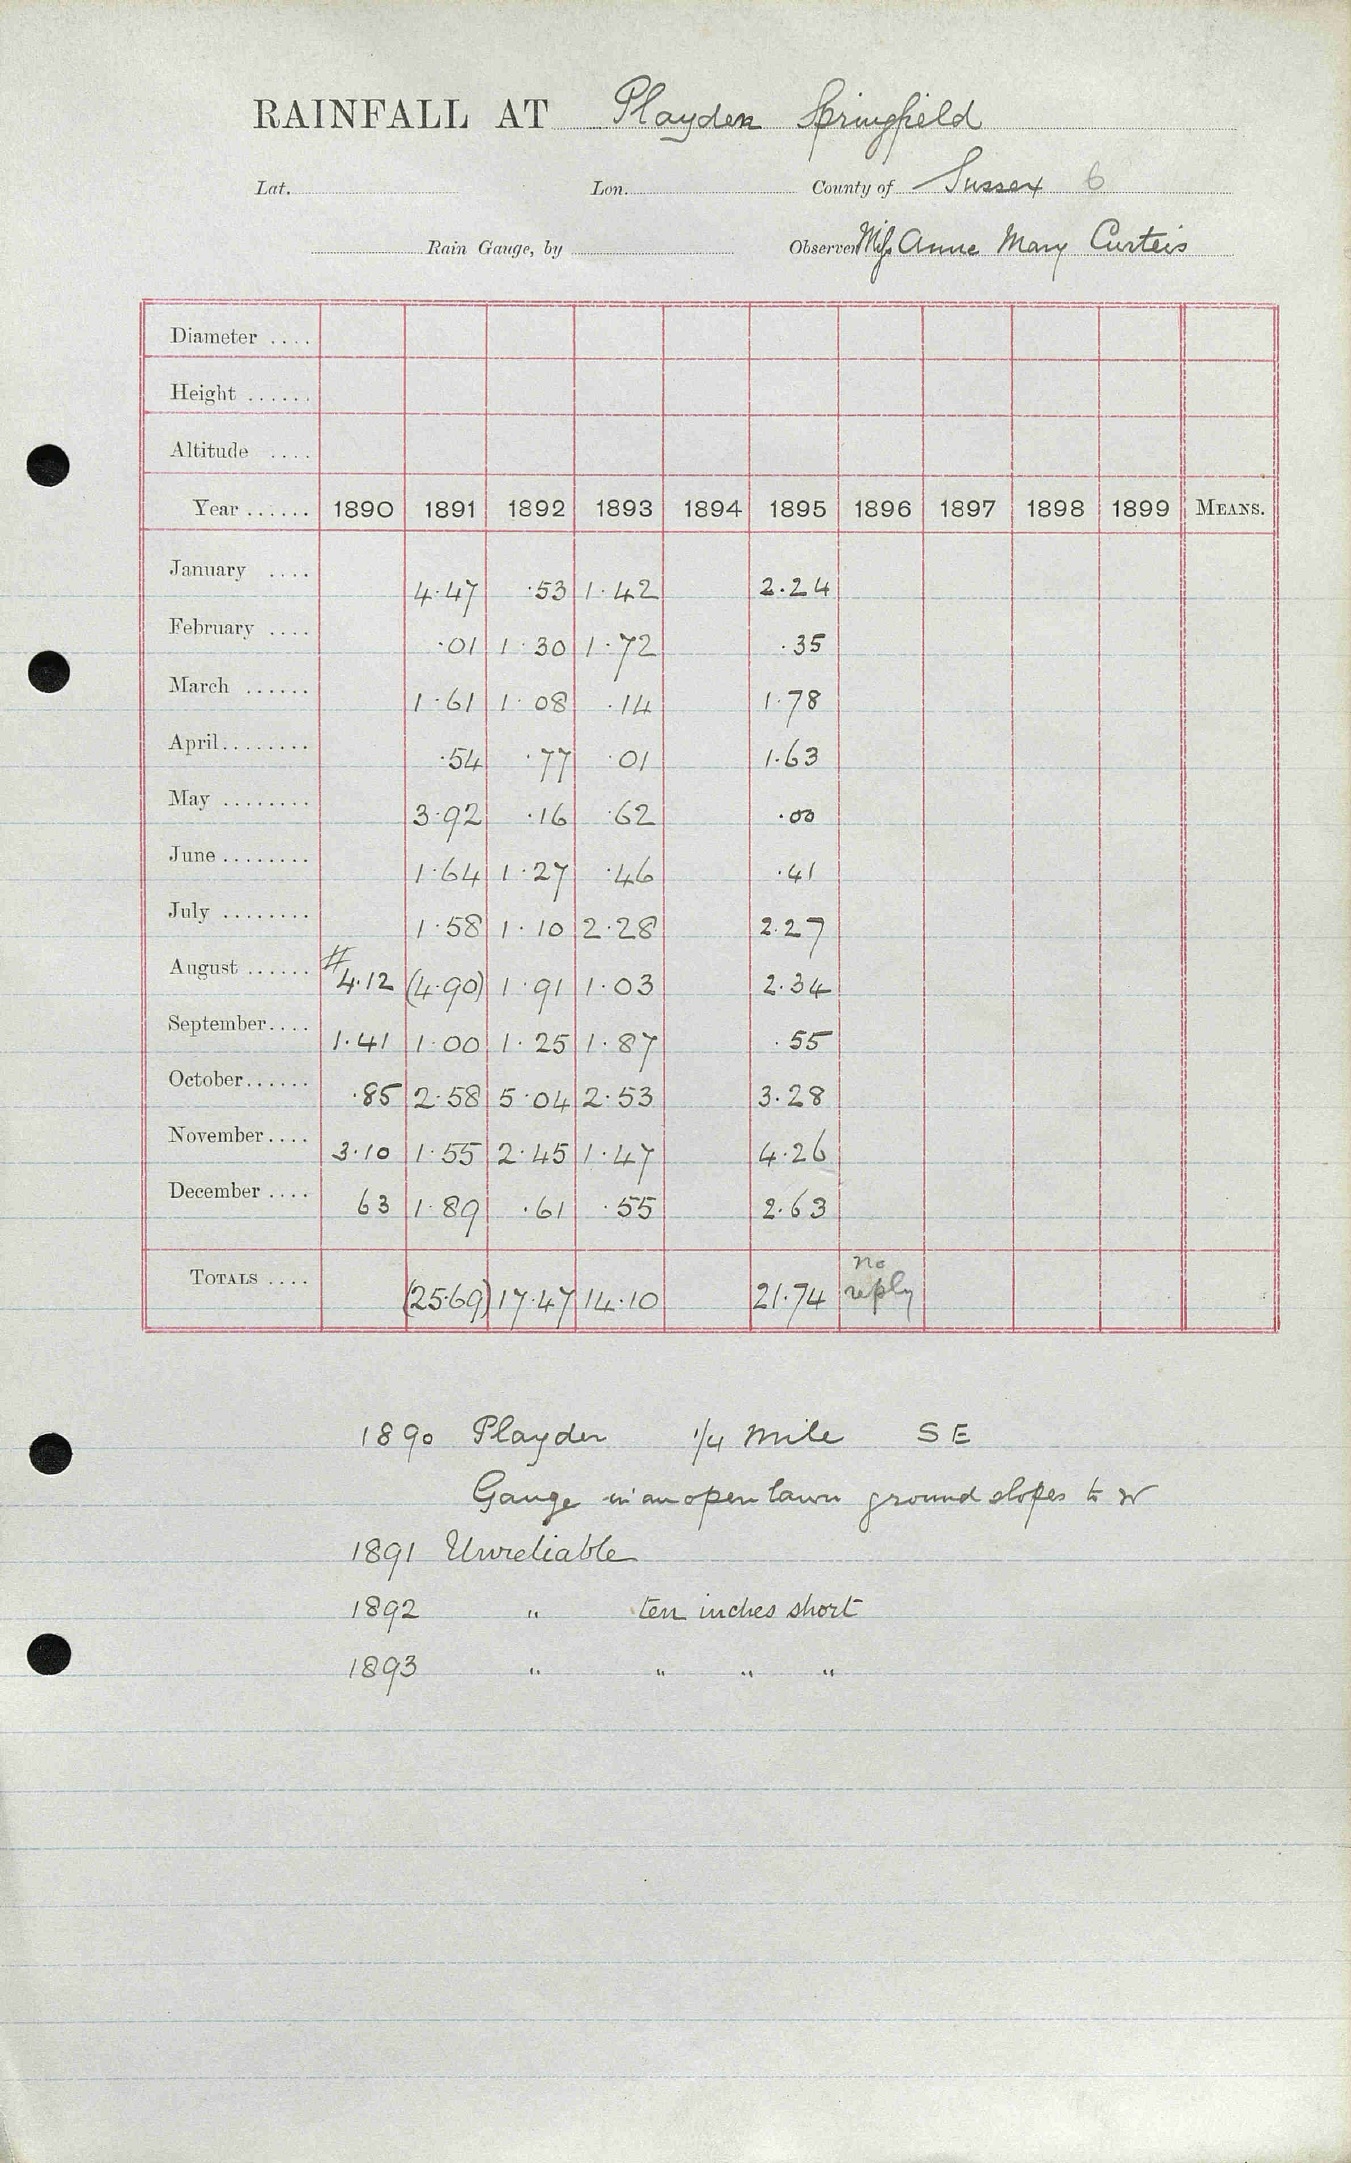 RAINFALL AT Playden Springfield
Lat. Lon. County of Sussex 6
Rain Gauge, by Observer Miss Anne Mary Curteis
Diameter ....
Height ......
Altitude ....
Year ...... 1890 1891 1892 1893 1894 1895 1896 1897 1898 1899 MEANS.
January .... 4.47 .53 1.42 2.24
February .... .01 1.30 1.72 .35
March ...... 1.61 1.08 .14 1.78
April........ .54 .77 .01 1.63
May ........ 3.92 .16 .62 .00
June ........ 1.64 1.27 .46 .41
July ........ 1.58 1.10 2.28 2.27
August ...... # 4.12 (4.90) 1.91 1.03 2.34
September.... 1.41 1.00 1.25 1.87 .55
October...... .85 2.58 5.04 2.53 3.28
November.... 3.10 1.55 2.45 1.47 4.26
December .... 63 1.89 .61 .55 2.63
TOTALS .... (25.69) 17.47 14.10 21.74 no reply
1890 Playden 1/4 mile S E
Gauge in an open lawn ground slopes to W
1891 Unreliable
1892 " ten inches short
1893 " " " "